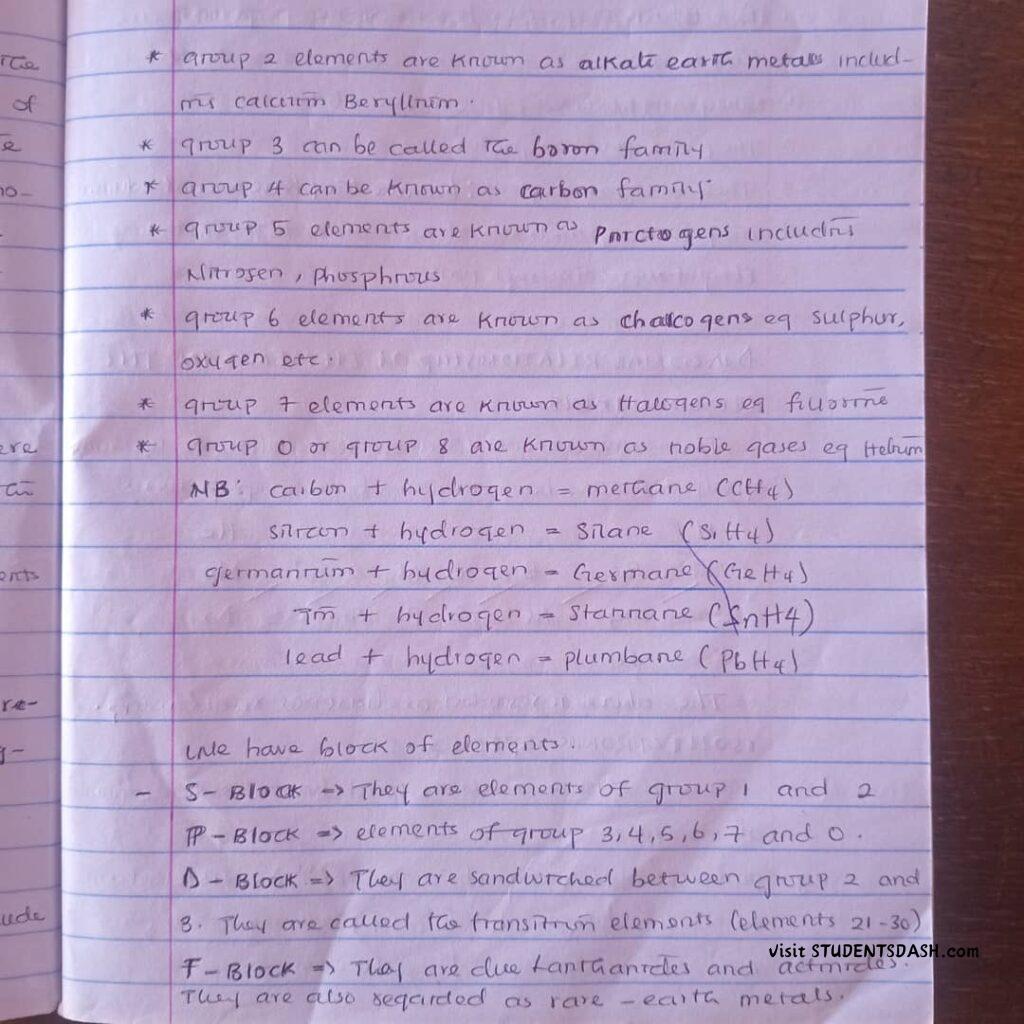 * group 2 elements are known as alkali earth metals includ-
ing calcium Beryllium.
* group 3 can be called the boron family
* group 4 can be known as carbon family.
* group 5 elements are known as Pnictogens including
Nitrogen, phosphrous
* group 6 elements are known as chalcogens eg sulphur,
oxygen etc.
* group 7 elements are known as Halogens eg fluorine
* group 0 or group 8 are known as noble gases eg Helium
NB: carbon + hydrogen = methane (CH4)
silicon + hydrogen = silane (SiH4)
germanium + hydrogen = Germane (GeH4)
Tin + hydrogen = stannane (SnH4)
lead + hydrogen = plumbane (PbH4)
We have block of elements.
- S-Block => They are elements of group 1 and 2
P-Block => elements of group 3,4,5,6,7 and 0.
D-Block => They are sandwiched between group 2 and
3. They are called the transition elements (elements 21-30)
visit STUDENTSDASH.com
F-Block => They are due Lanthanides and actinides.
They are also regarded as rare-earth metals.